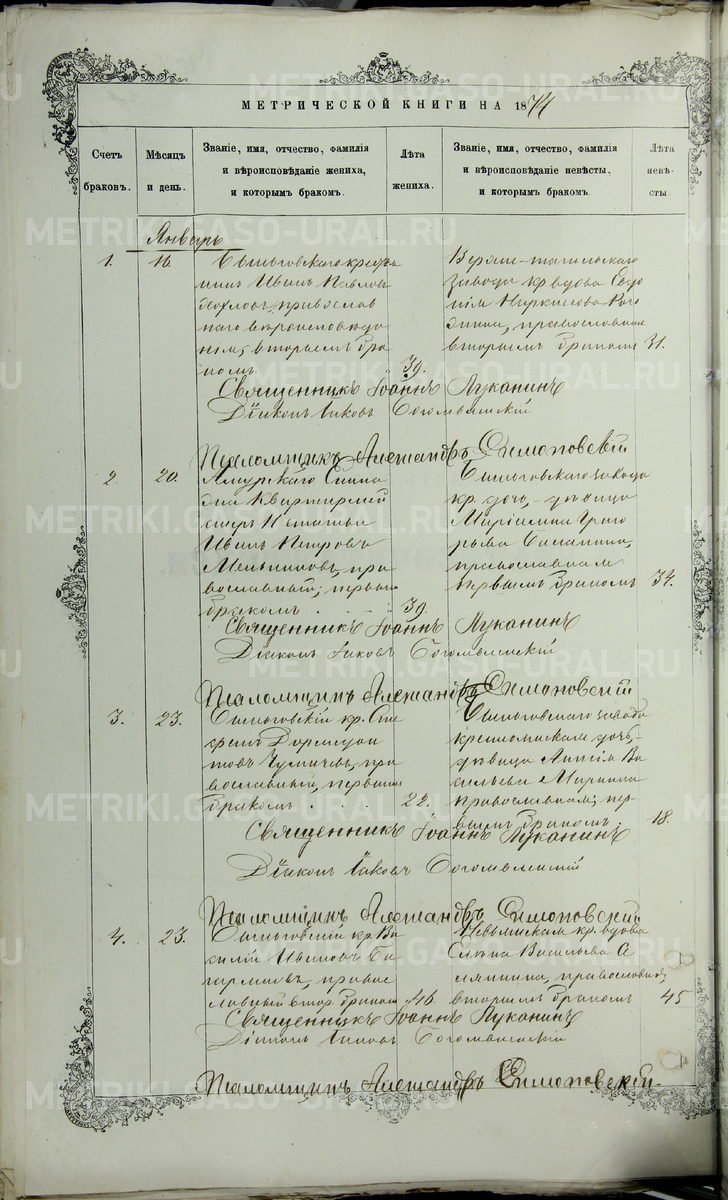 МЕТРИЧЕСКОЙ КНИГИ НА 1874
Счетъ браковъ.
Мѣсяцъ и день.
Званіе, имя, отчество, фамилія и вѣроисповѣданіе жениха, и которымъ бракомъ.
Лѣта жениха.
Званіе, имя, отчество, фамилія и вѣроисповѣданіе невѣсты, и которымъ бракомъ.
Лѣта невѣсты.
Январь
1.
16.
Быньговскаго крестья
нинъ Иванъ Павловъ
православ
наго вѣроисповѣда
нія, вторымъ бра
комъ
39.
Верхне-тагильскаго
завода кр. вдова Евдо
кія Наркисова
православная
вторымъ бракомъ
31.
Священникъ Іоаннъ Луканинъ
Діаконъ Іаковъ Богомвленскій
Псаломщикъ Александръ Симоновскій
2.
20.
Амурскаго
Иванъ Петровъ
Мельниковъ, пра
вославный, первымъ
бракомъ
39.
Быньговскаго завода
кр. дочь, дѣвица
Маріамна Григо
рьева
православная
первымъ бракомъ
34.
Священникъ Іоаннъ Луканинъ
Діаконъ Іаковъ Богомвленскій
Псаломщикъ Александръ Симоновскій
3.
23.
Быньговскій кр. Сте
фанъ Дормедон
товъ пра
вославный, первымъ
бракомъ
22.
Быньговскаго завода
крестьянская дочь,
дѣвица Анисія Ва
сильева
православная, пер
вымъ бракомъ
18.
Священникъ Іоаннъ Луканинъ
Діаконъ Іаковъ Богомвленскій
Псаломщикъ Александръ Симоновскій
4.
23.
Быньговскій кр. Ва
силій Ивановъ
правос
лавный втор. бракомъ
46.
Невьянская кр. вдова
Васильева
православная,
вторымъ бракомъ
45
Священникъ Іоаннъ Луканинъ
Діаконъ Іаковъ Богомвленскій
Псаломщикъ Александръ Симоновскій.
METRIKI.GASO-URAL.RU